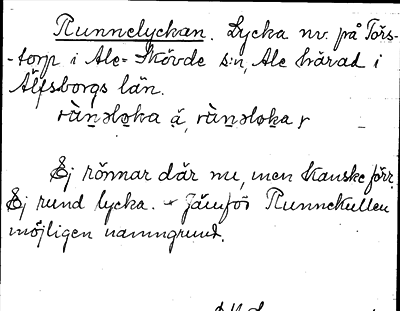 Runnelyckan. Lycka nv. på Törs-
-torp i Ale-Skövde s:n, Ale härad i
Älfsborgs län.
Ej rönnar där nu, men kanske förr.
Ej rund lycka. - Jämför Runnekullen
möjligen namngrund.